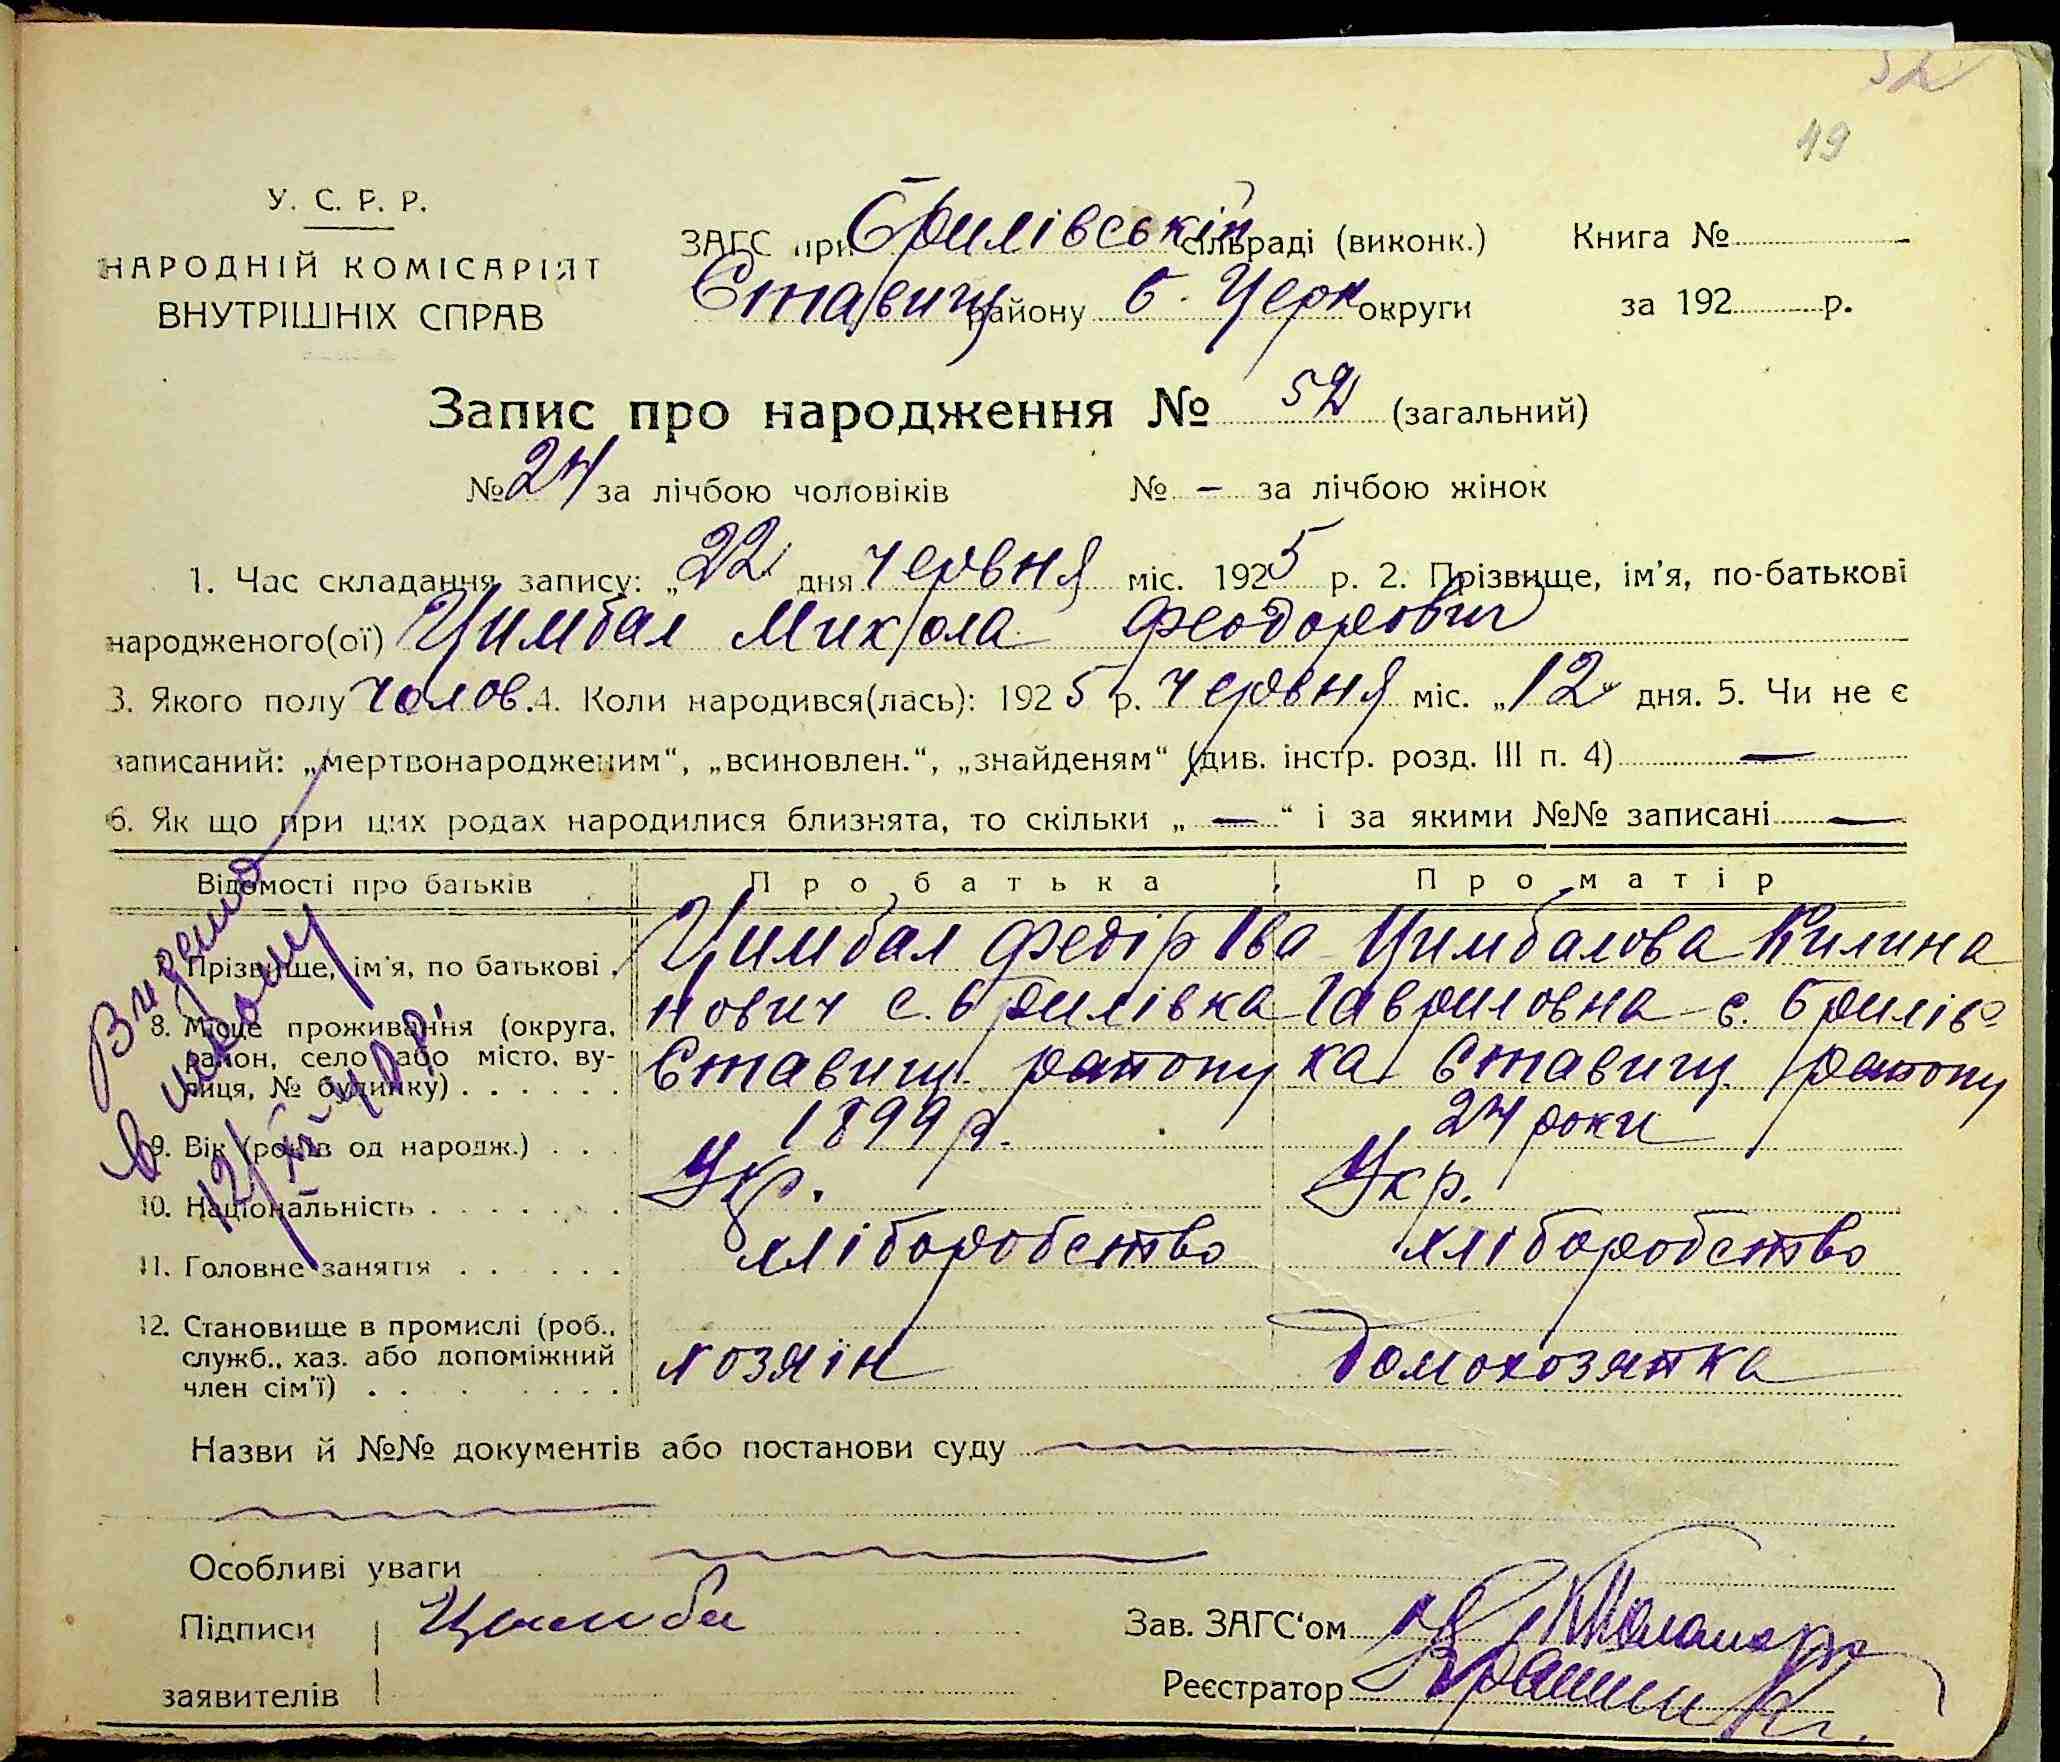 52
49
У. С. Р. Р.
НАРОДНІЙ КОМІСАРІЯТ
ВНУТРІШНІХ СПРАВ
ЗАГС при Брилівській сільраді (виконк.) Книга №
Ставищ району Б. Церк округи за 192 р.
Запис про народження № 52 (загальний)
№ 24 за лічбою чоловіків № — за лічбою жінок
1. Час складання запису: „22 дня червня міс. 1925 р. 2. Прізвище, ім'я, по-батькові
народженого(ої) Цимбал Микола Феодорович
3. Якого полу чолов. 4. Коли народився(лась): 1925 р. червня міс. „12 дня. 5. Чи не є
записаний: „мертвонародженим“, „всиновлен.“, „знайденям“ (див. інстр. розд. III п. 4) —
6. Як що при цих родах народилися близнята, то скільки „ — “ і за якими №№ записані —
Відомості про батьків Про батька Про матір
7. Прізвище, ім'я, по батькові . Цимбал Федір Іва Цимбалова Килина
8. Місце проживання (округа, нович с. Брилівка Гавриловна с. Брилів
район, село або місто, ву-
лиця, № будинку) . . . . . . Ставищ. району ка Ставищ. району
9. Вік (років од народж.) . . . 1899 р. 24 роки
10. Національність . . . . . . . Укр. Укр.
11. Головне заняття . . . . . . хліборобство хліборобство
12. Становище в промислі (роб.,
служб., хаз. або допоміжний хозяін домохозяйка
член сім'ї) . . . . . . .
Видано
12/XII
Назви й №№ документів або постанови суду
Особливі уваги
Підписи Цимба Зав. ЗАГС‘ом
заявителів Реєстратор